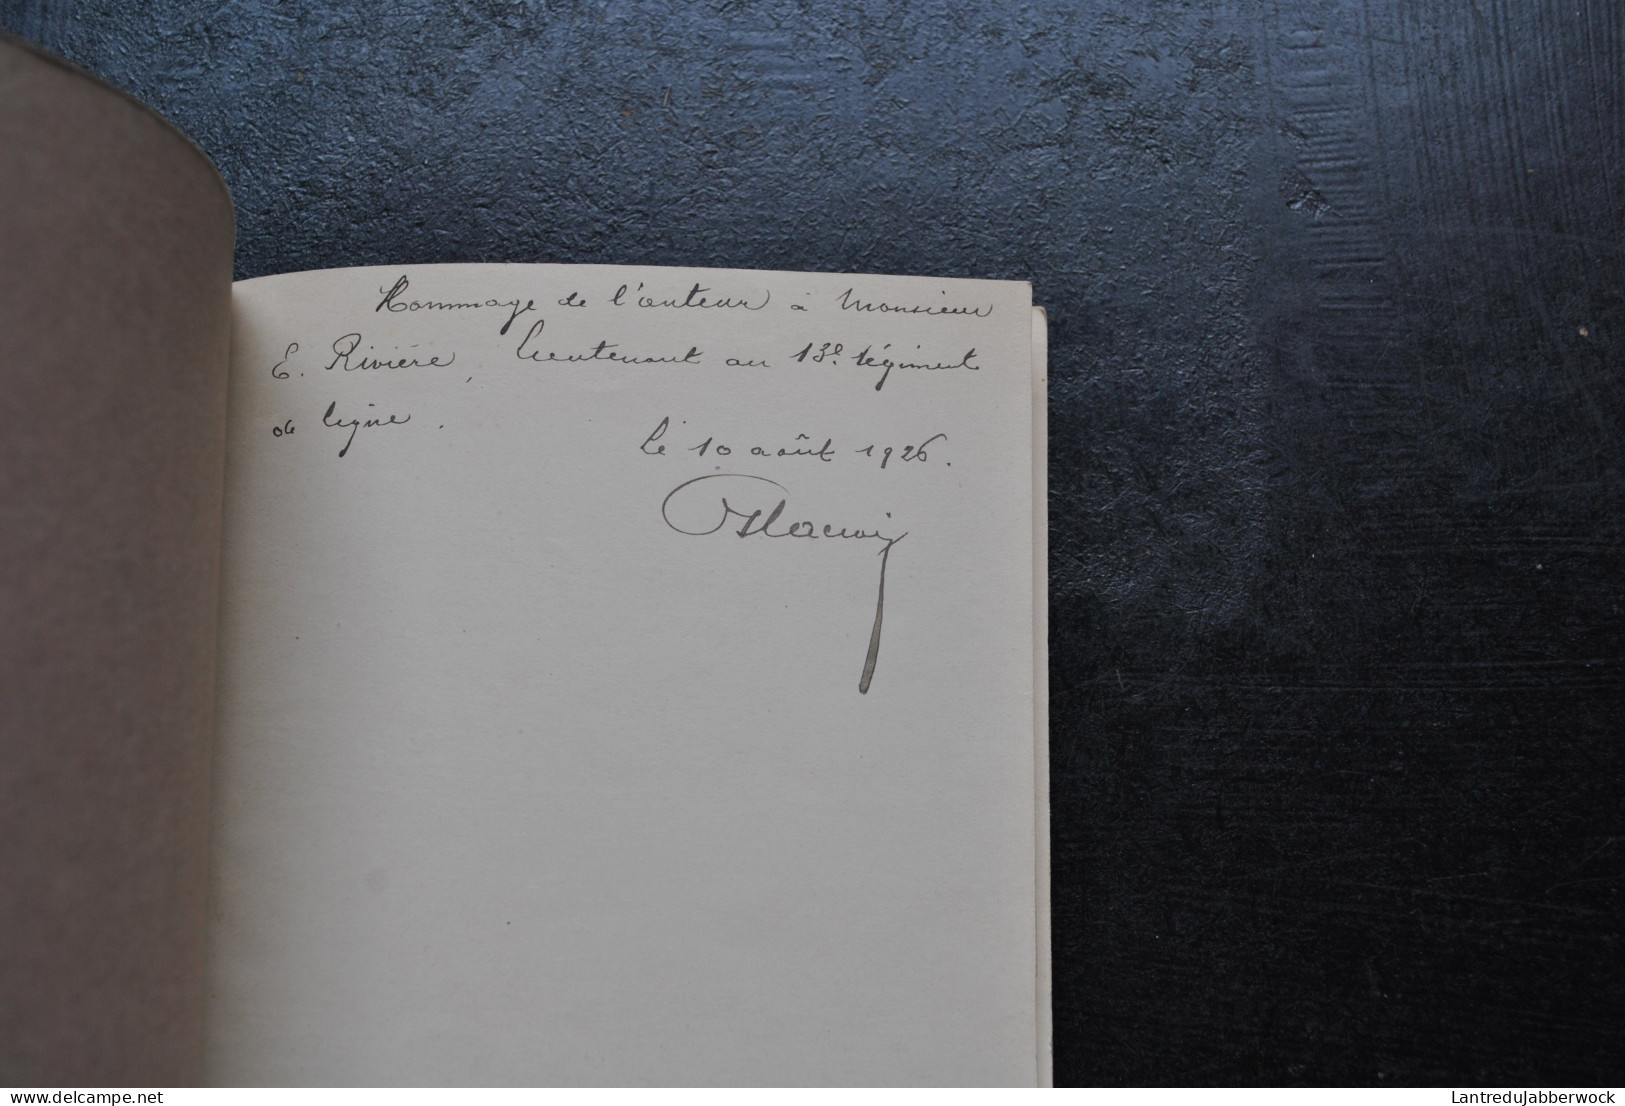 Hommage de l'auteur à Monsieur
E. Rivière, Lieutenant au 13e. régiment
de ligne.
Le 10 août 1926.
delcampe.net
LantreduJabberwock